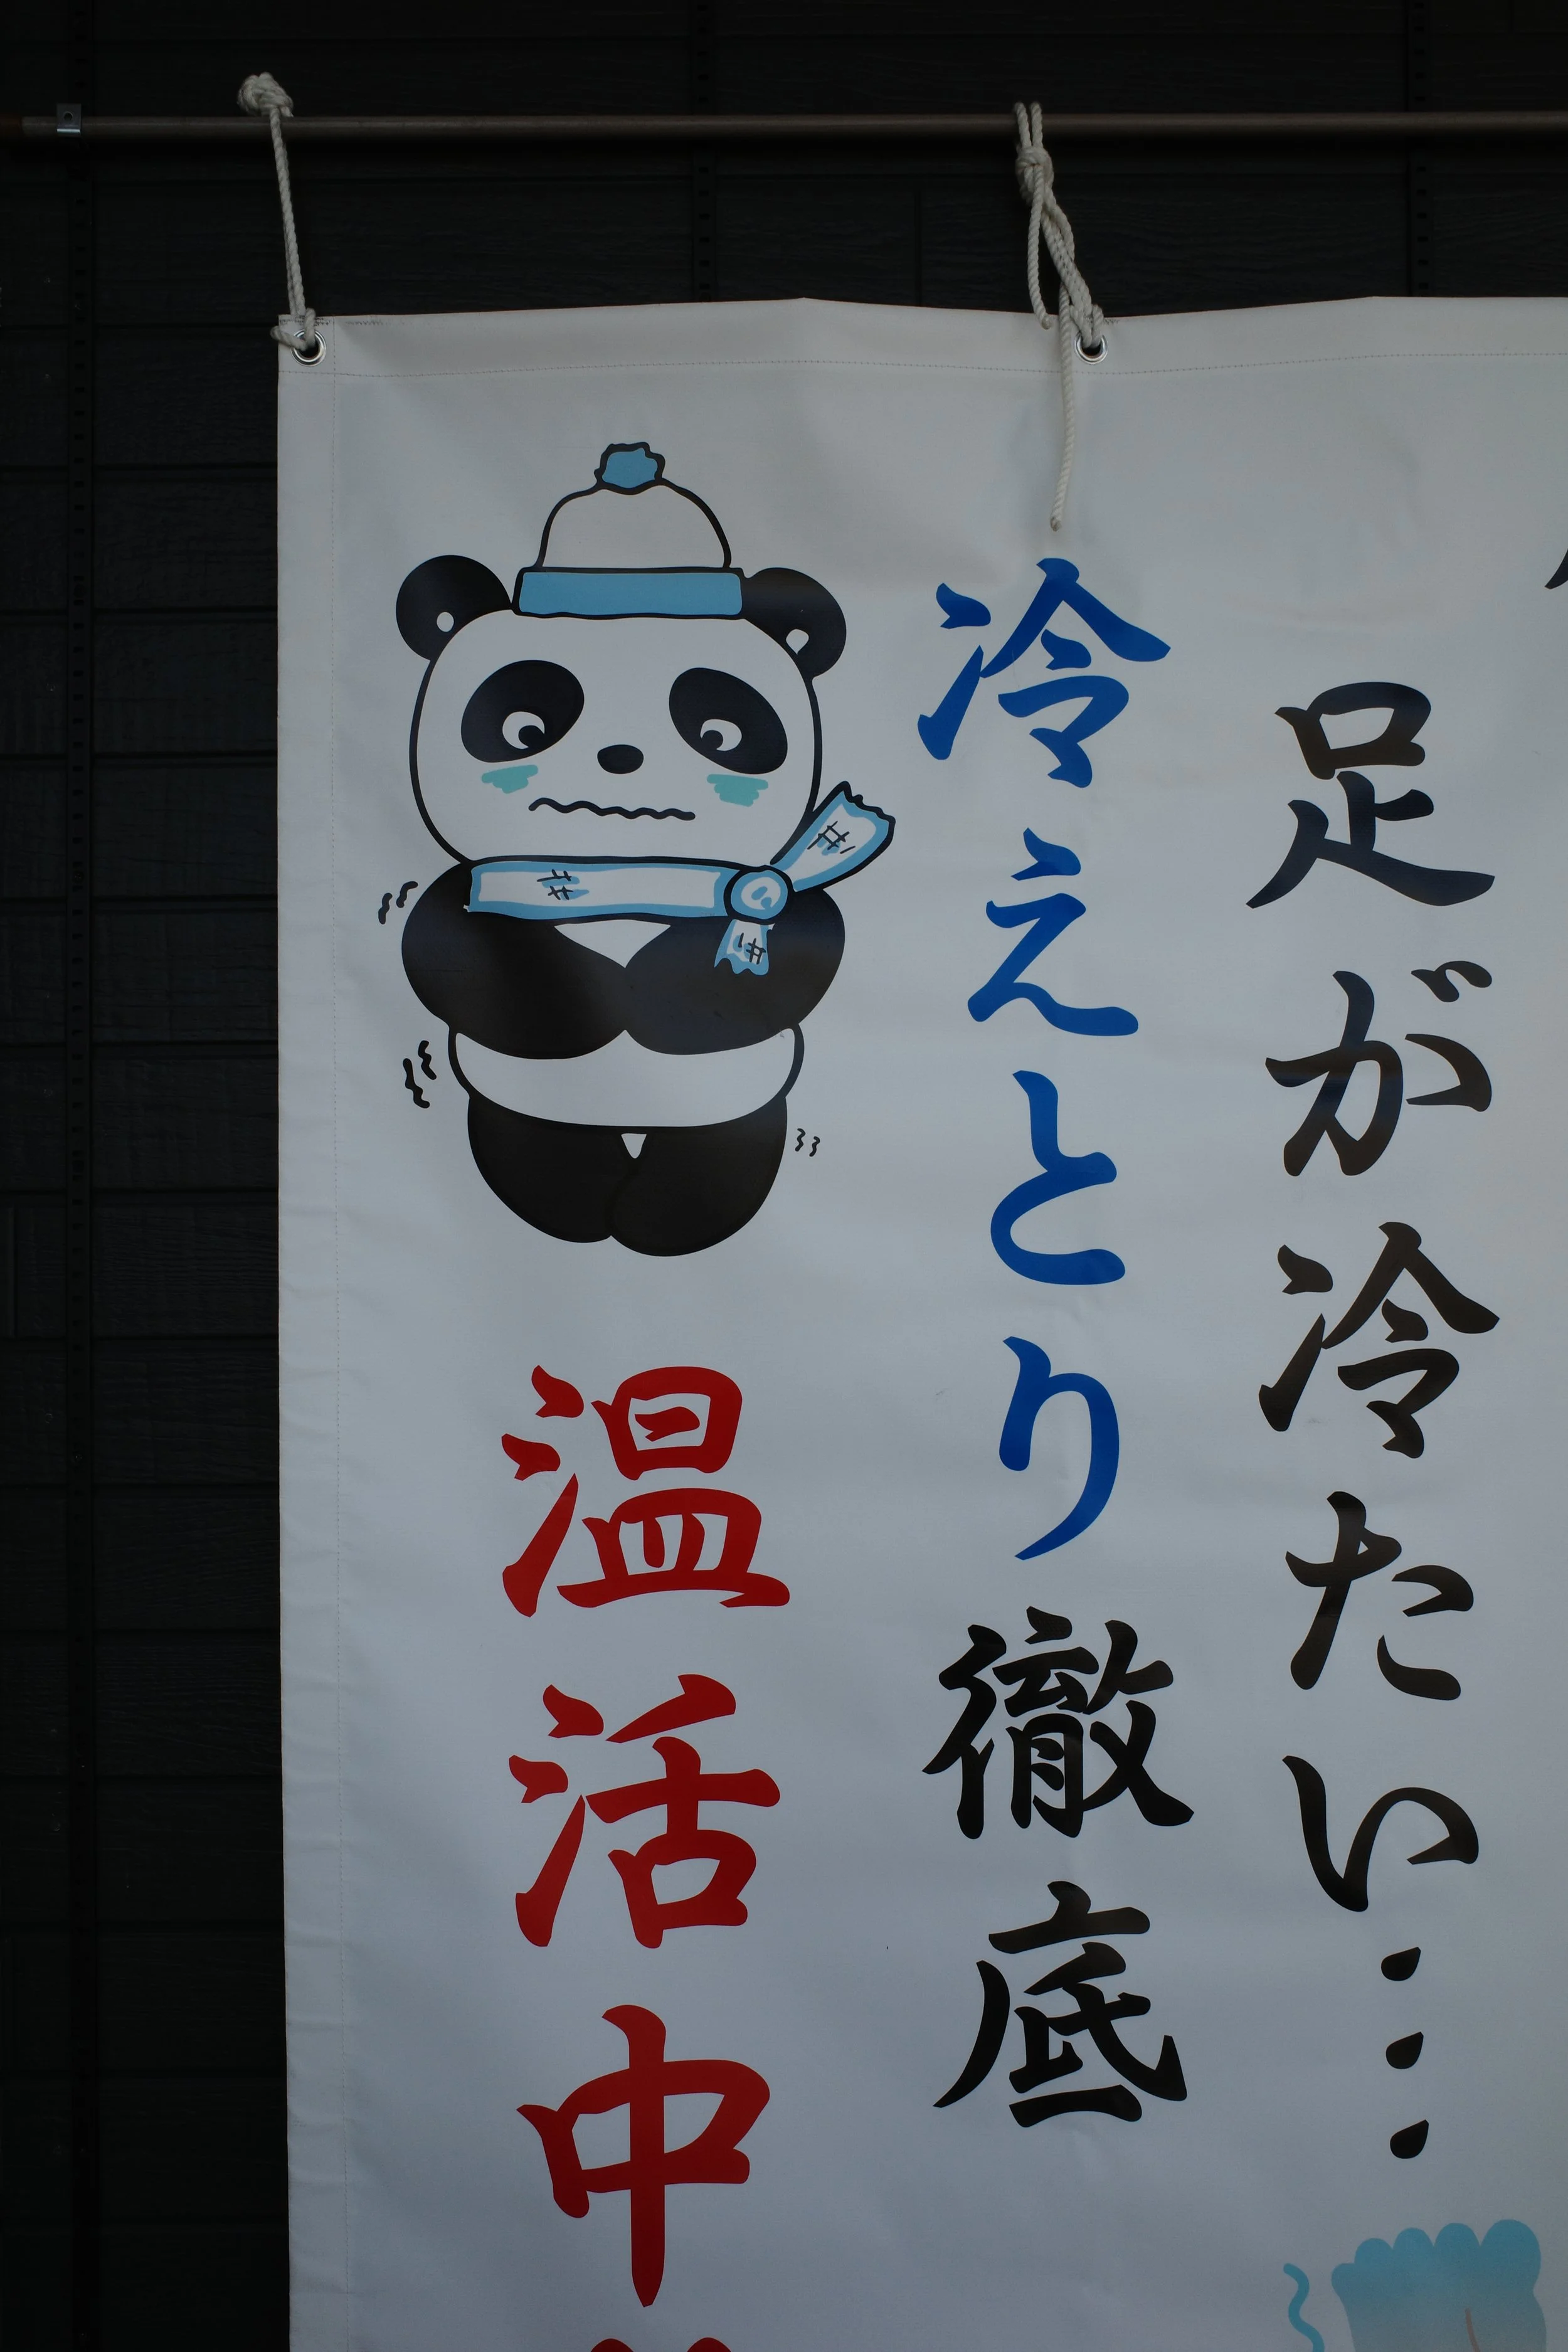 足が冷たい…
冷えとり徹底
温活中